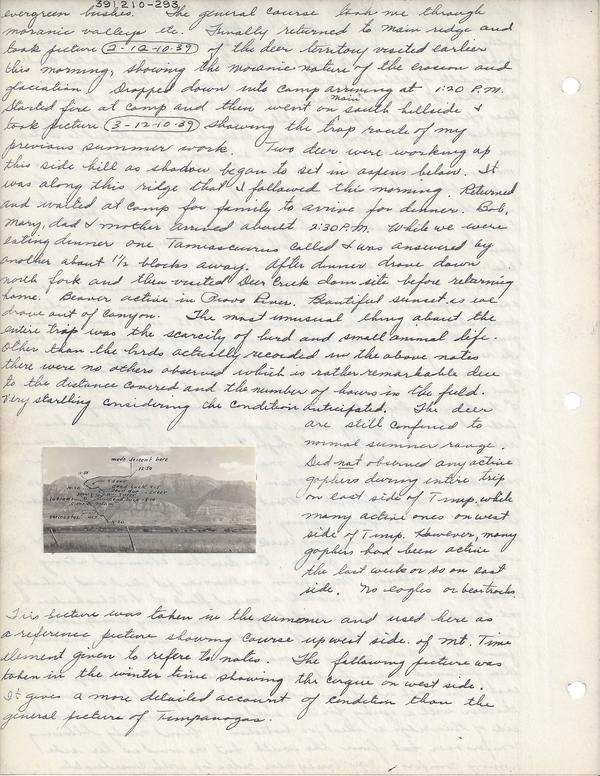 391210-293
evergreen bushes. The general course took me through
morainic valleys etc. Finally returned to main ridge and
took picture (2-12-10-39) of the deer territory visited earlier
this morning, showing the morainic nature of the erosion and
glaciation. Dropped down into camp arriving at 1:20 P.M.
Started fire at camp and then went on main south hillside &
took picture (3-12-10-39) showing the trap route of my
previous summer work. Two deer were working up
this side hill as shadow began to set in aspens below. It
was along this ridge that I followed this morning. Returned
and waited at camp for family to arrive for dinner. Bob,
Mary, dad & mother arrived about 2:30 P.M. While we were
eating dinner one Tamiasciurus called & was answered by
another about 1 1/2 blocks away. After dinner drove down
north fork and then visited Deer Creek dam site before returning
home. Beaver active in Provo River. Beautiful sunset as we
drove out of canyon. The most unusual thing about the
entire trip was the scarcity of bird and small animal life.
Other than the birds actually recorded in the above notes
there were no others observed which is rather remarkable due
to the distance covered and the number of hours in the field.
Very startling considering the condition anticipated. The deer
are still confined to
normal summer range.
Did not observed any active
gophers during entire trip
on east side of Timp. while
many active ones on west
side of Timp. However, many
gophers had been active
the last week or so on east
side. No eagles or bear tracks.
made descent here
12:50
This picture was taken in the summer and used here as
a reference picture showing course up west side of Mt. Time
element given to refere to notes. The following picture was
taken in the winter time showing the cirque on west side.
It gives a more detailed account of condition than the
general picture of Timpanogas.